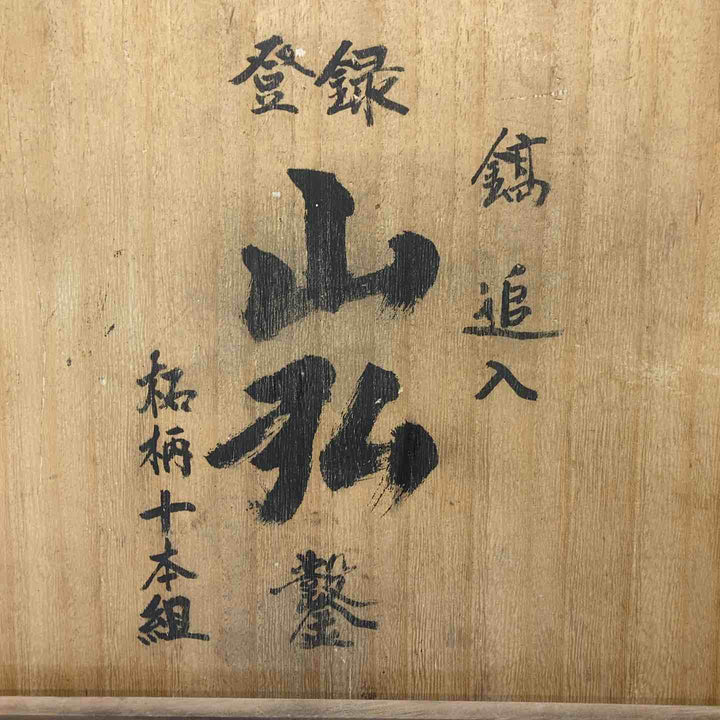 登録
鎬追入
山弘鑿
柘柄十本組